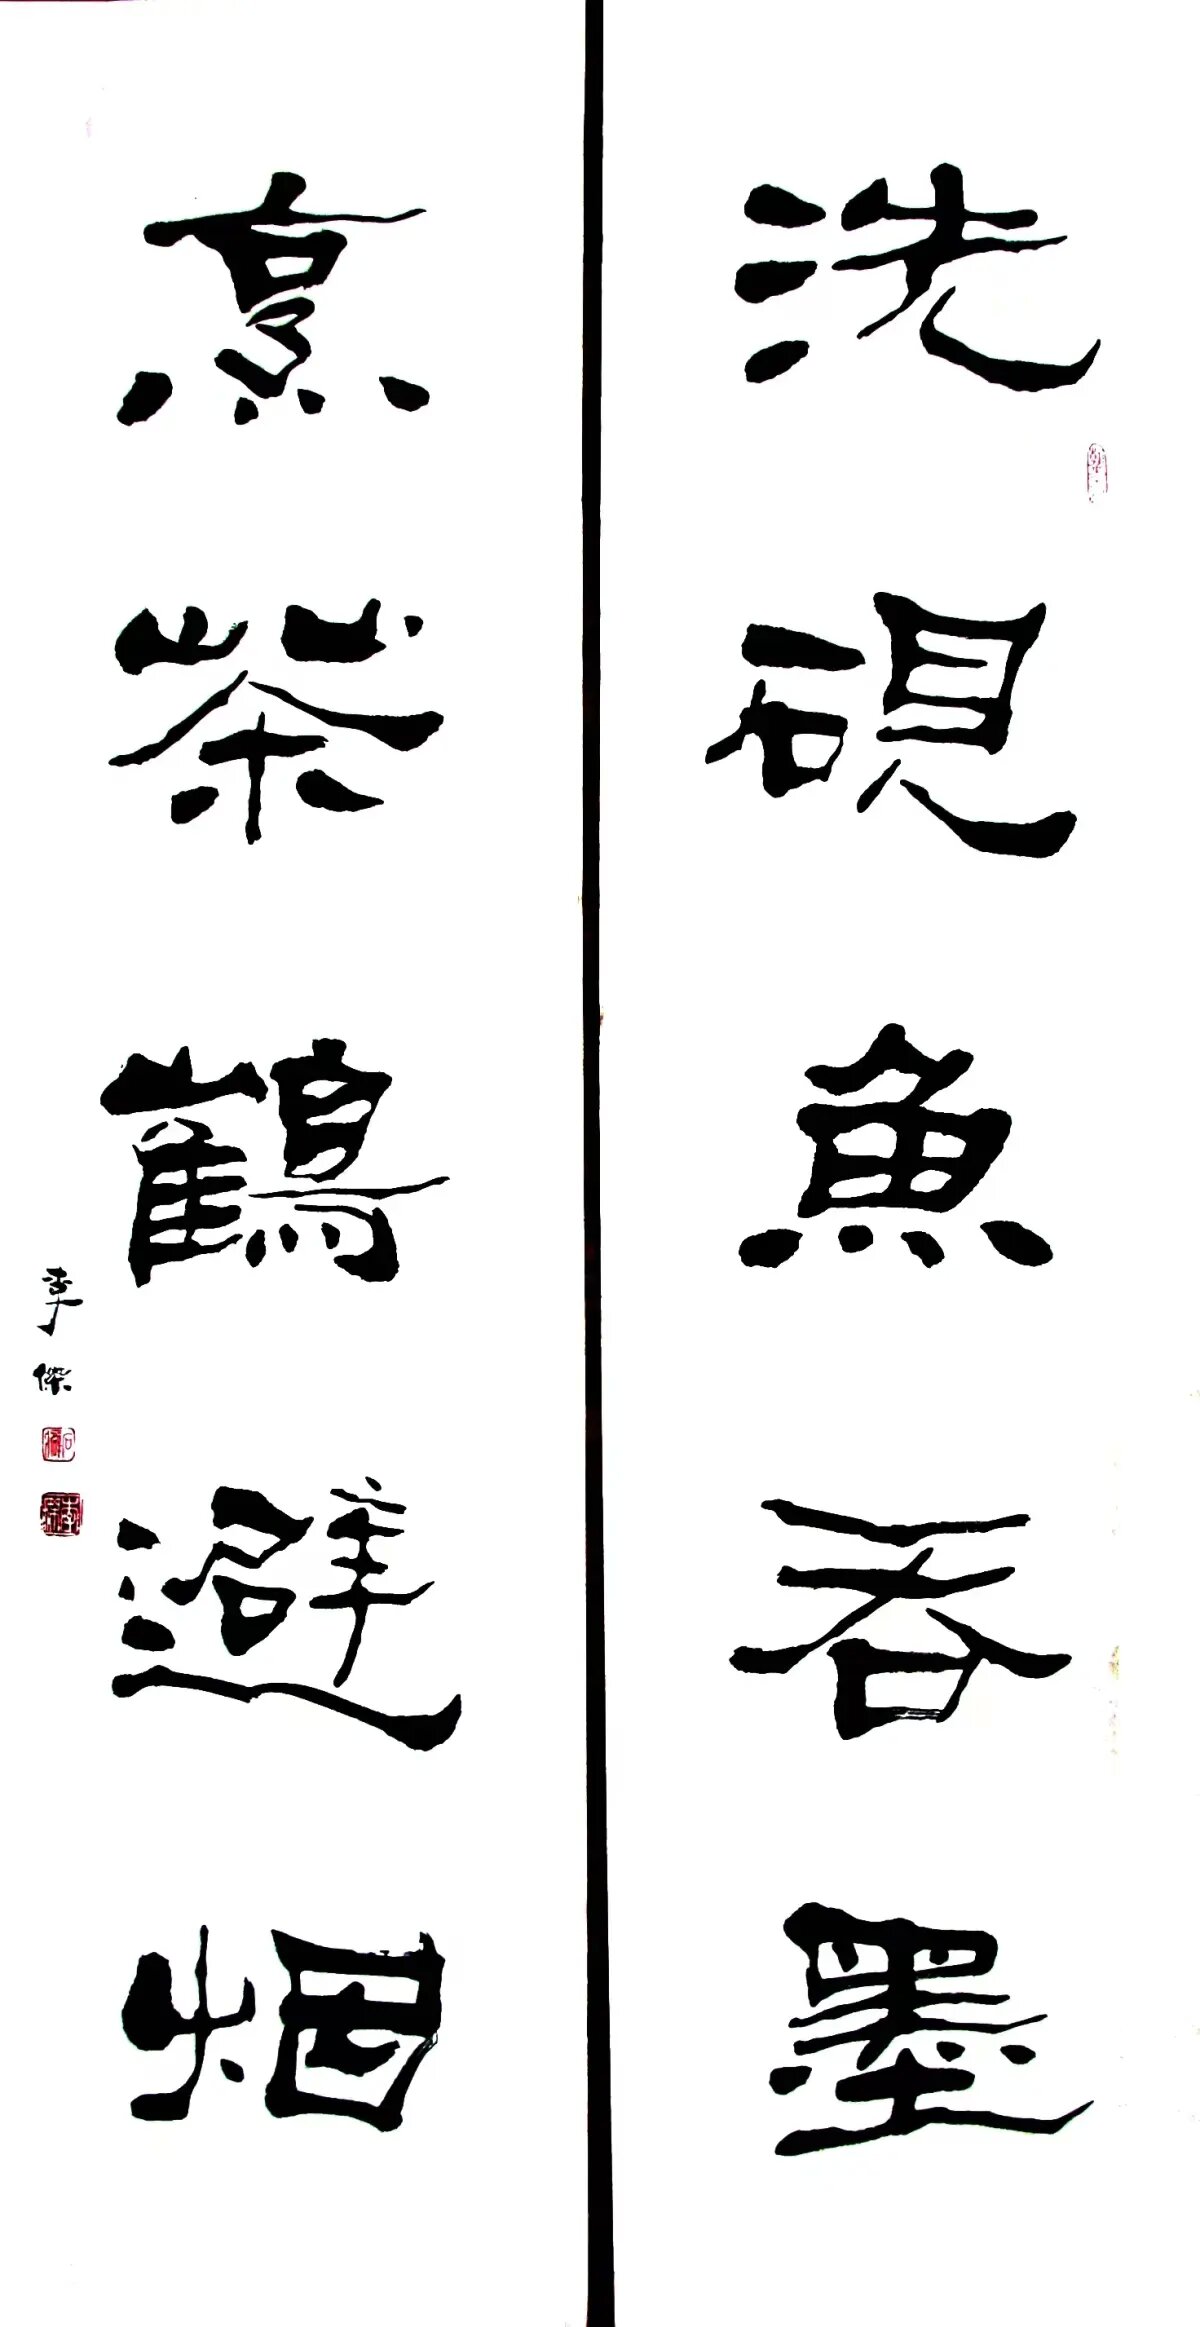 洗硯魚吞墨
烹茶鶴避烟
李傑